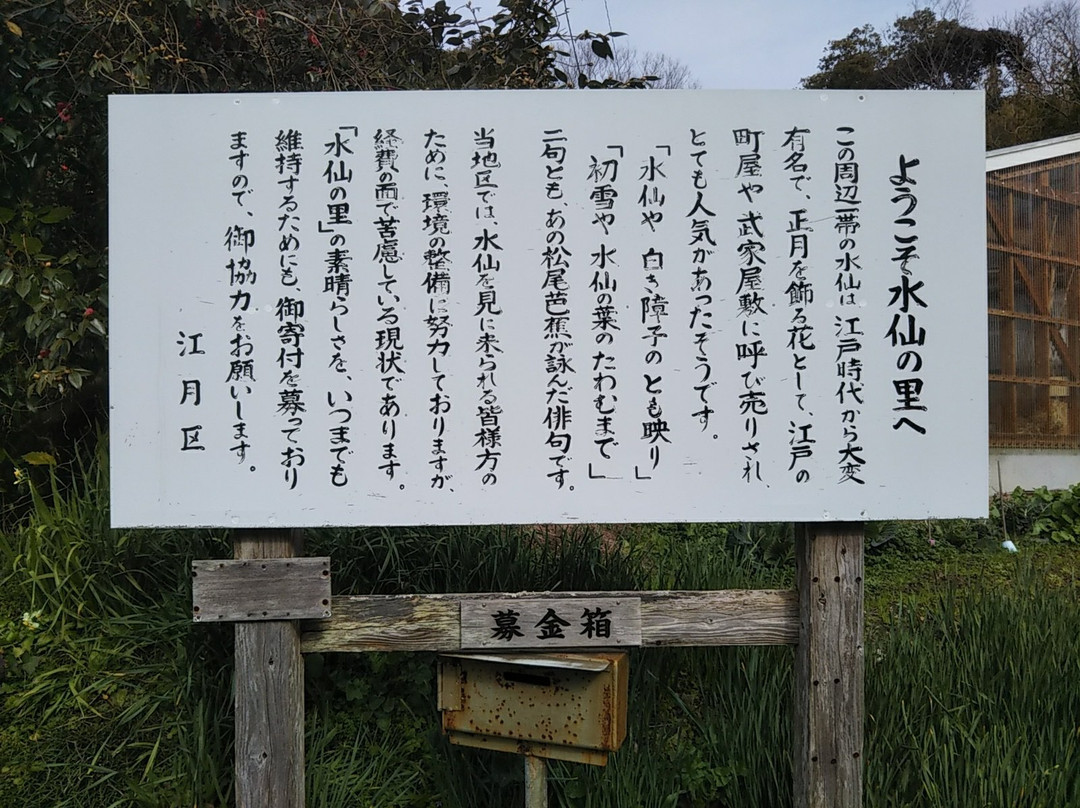 ようこそ水仙の里へ
この周辺一帯の水仙は江戸時代から大変
有名で、正月を飾る花として、江戸の
町屋や武家屋敷に呼び売りされ、
とても人気があったそうです。
「水仙や 白き障子のとも映り」
「初雪や 水仙の葉のたわむまで」
二句とも、あの松尾芭蕉が詠んだ俳句です。
当地区では、水仙を見に来られる皆様方の
ために、環境の整備に努力しておりますが、
経費の面で苦慮している現状であります。
「水仙の里」の素晴らしさを、いつまでも
維持するためにも、御寄付を募っており
ますので、御協力をお願いします。
江月区
募金箱